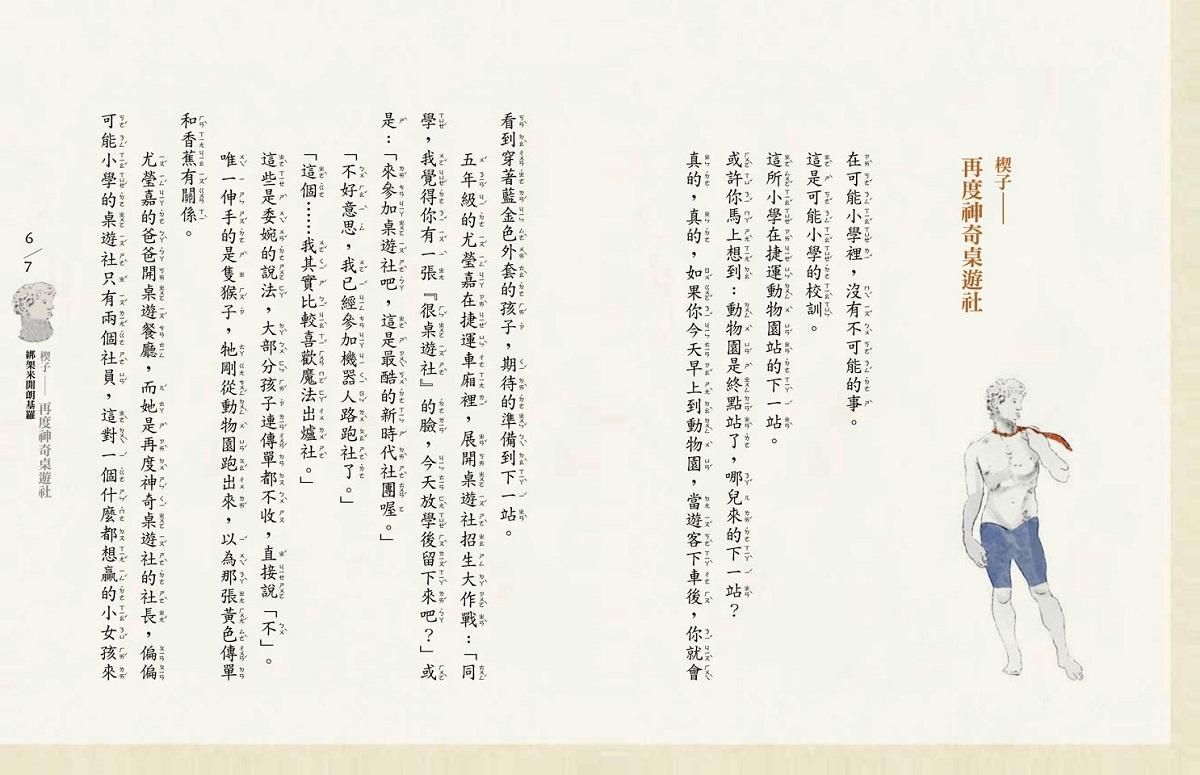 楔子——
再度神奇桌遊社
在可能小學裡，沒有不可能的事。
這是可能小學的校訓。
這所小學在捷運動物園站的下一站。
或許你馬上想到：動物園是終點站了，哪兒來的下一站？
真的，真的，如果你今天早上到動物園，當遊客下車後，你就會
看到穿著藍金色外套的孩子，期待的準備到下一站。
五年級的尤瑩嘉在捷運車廂裡，展開桌遊社招生大作戰：「同
學，我覺得你有一張『很桌遊社』的臉，今天放學後留下來吧？」或
是：「來參加桌遊社吧，這是最酷的新時代社團喔。」
「不好意思，我已經參加機器人路跑社了。」
「這個……我其實比較喜歡魔法出爐社。」
這些是委婉的說法，大部分孩子連傳單都不收，直接說「不」。
唯一伸手的是隻猴子，牠剛從動物園跑出來，以為那張黃色傳單
和香蕉有關係。
尤瑩嘉的爸爸開桌遊餐廳，而她是再度神奇桌遊社的社長，偏偏
可能小學的桌遊社只有兩個社員，這對一個什麼都想贏的小女孩來
6／7
楔子——再度神奇桌遊社
綁架米開朗基羅